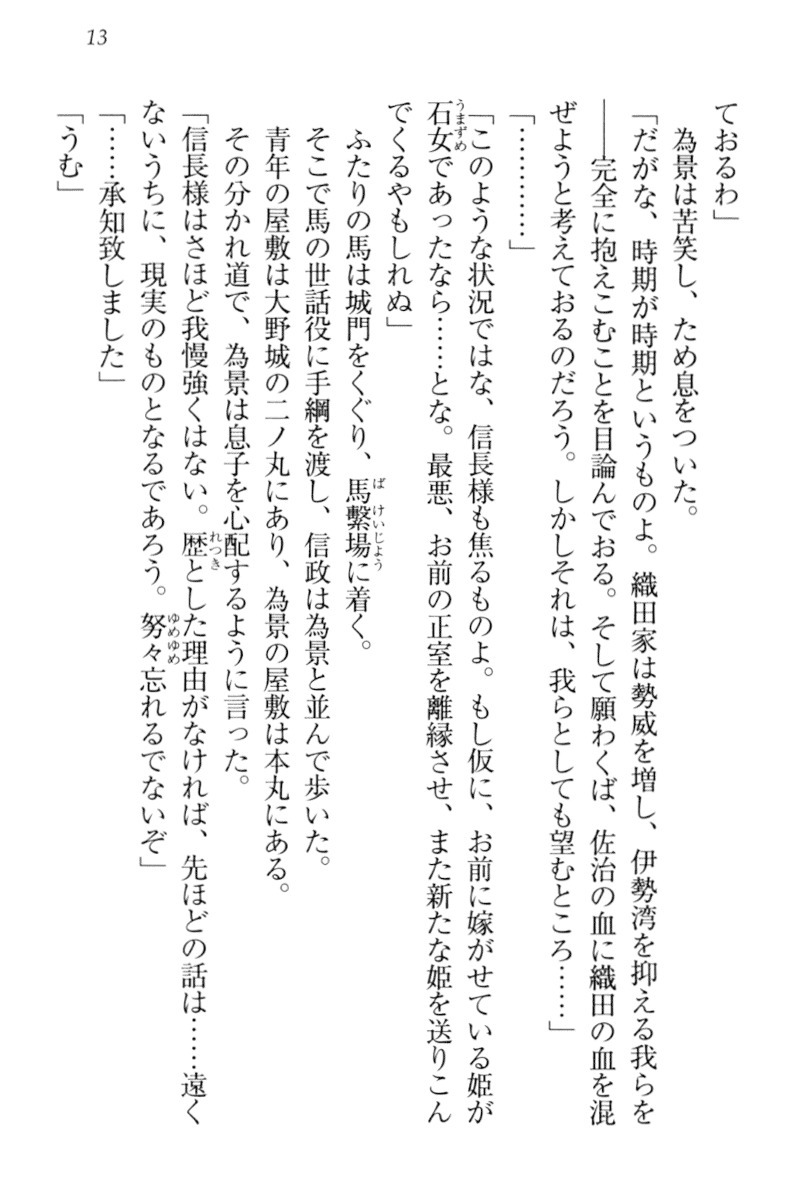 13
ておるわ」
為景は苦笑し、ため息をついた。
「だがな、時期が時期というものよ。織田家は勢威を増し、伊勢湾を抑える我らを
――完全に抱えこむことを目論んでおる。そして願わくば、佐治の血に織田の血を混
ぜようと考えておるのだろう。しかしそれは、我らとしても望むところ……」
「…………」
「このような状況ではな、信長様も焦るものよ。もし仮に、お前に嫁がせている姫が
石女であったなら……とな。最悪、お前の正室を離縁させ、また新たな姫を送りこん
うまずめ
でくるやもしれぬ」
ふたりの馬は城門をくぐり、馬繋場に着く。
ばけいじよう
そこで馬の世話役に手綱を渡し、信政は為景と並んで歩いた。
青年の屋敷は大野城の二ノ丸にあり、為景の屋敷は本丸にある。
その分かれ道で、為景は息子を心配するように言った。
「信長様はさほど我慢強くはない。歴とした理由がなければ、先ほどの話は……遠く
れつき
ないうちに、現実のものとなるであろう。努々忘れるでないぞ」
ゆめゆめ
「……承知致しました」
「うむ」